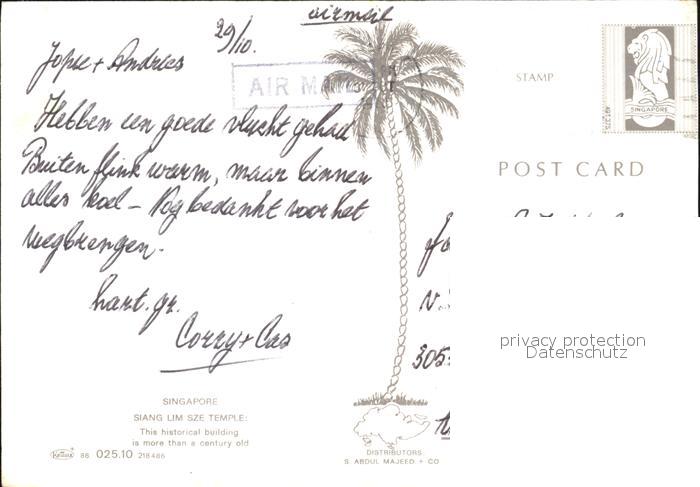 airmail
29/10.
Jopie + Andries
AIR MAIL
Hebben een goede vlucht gehad
Buiten flink warm, maar binnen
alles koel - Nog bedankt voor het
wegbrengen.
hart. gr.
Corry + Cas
SINGAPORE
SIANG LIM SZE TEMPLE:
This historical building
is more than a century old
88 025.10 218486
STAMP
SINGAPORE
POST CARD
305
privacy protection
Datenschutz
DISTRIBUTORS
S. ABDUL MAJEED. + CO